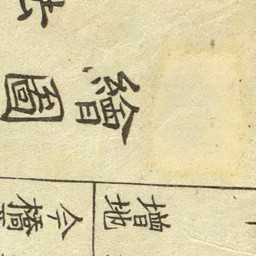 増地
今橋
繪圖